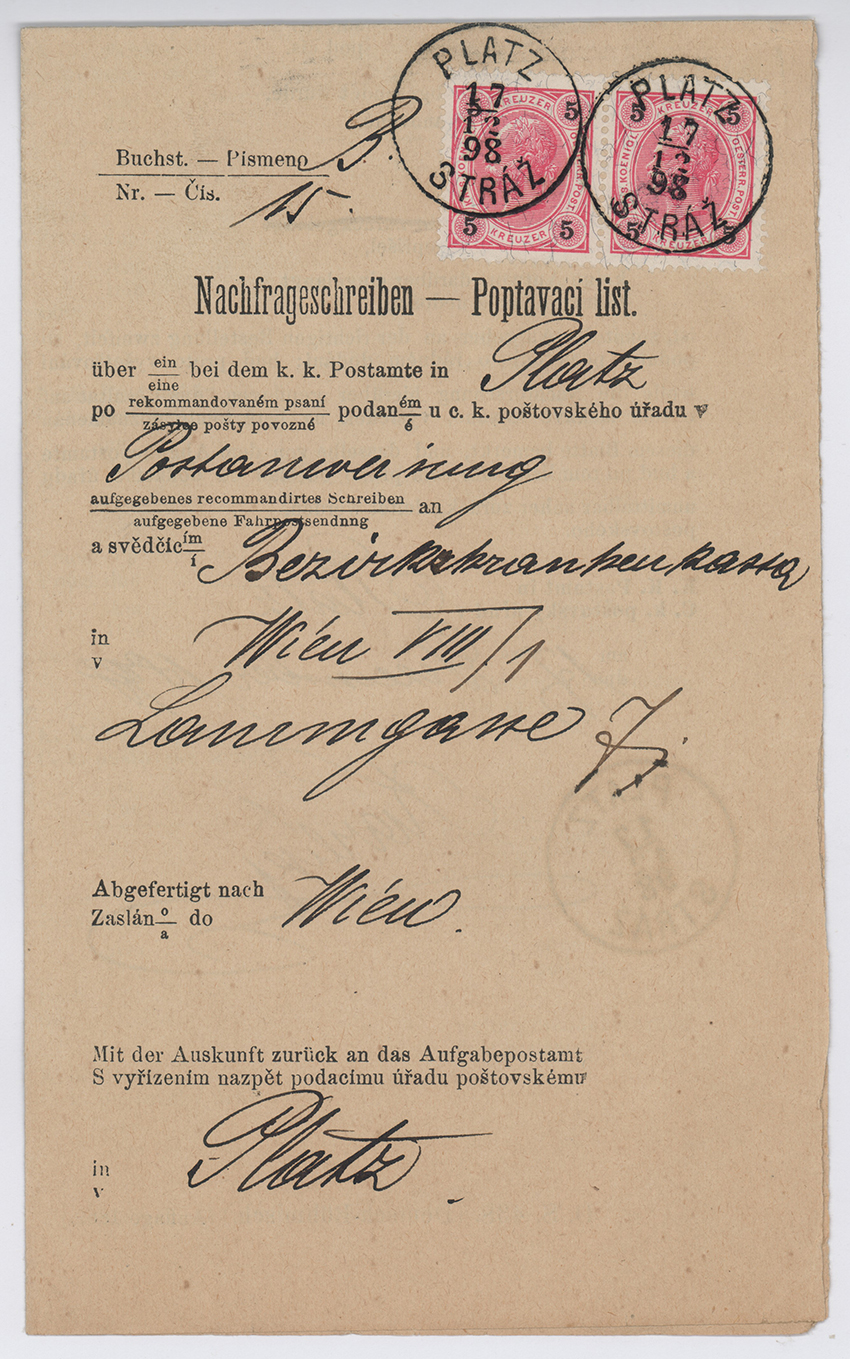 PLATZ
17
12
98
STRÁŽ
PLATZ
17
12
98
STRÁŽ
5 KREUZER 5
5 KREUZER 5
5 KREUZER 5
5 KREUZER 5
OESTERR. POST
Buchst. — Písmeno B.
Nr. — Čís. 15.
Nachfrageschreiben — Poptavací list.
über ein bei dem k. k. Postamte in Platz
eine
po rekommandovaném psaní podaném u c. k. poštovského úřadu v
zásylce pošty povozné é
Postanweisung
aufgegebenes recommandirtes Schreiben an
aufgegebene Fahrpostsendnng
a svědčícím Bezirkskrankenkassa
í
in Wien VIII/1
v
7.
Abgefertigt nach Wien.
Zasláno do
a
Mit der Auskunft zurück an das Aufgabepostamt
S vyřízením nazpět podacímu úřadu poštovskému
in Platz.
v